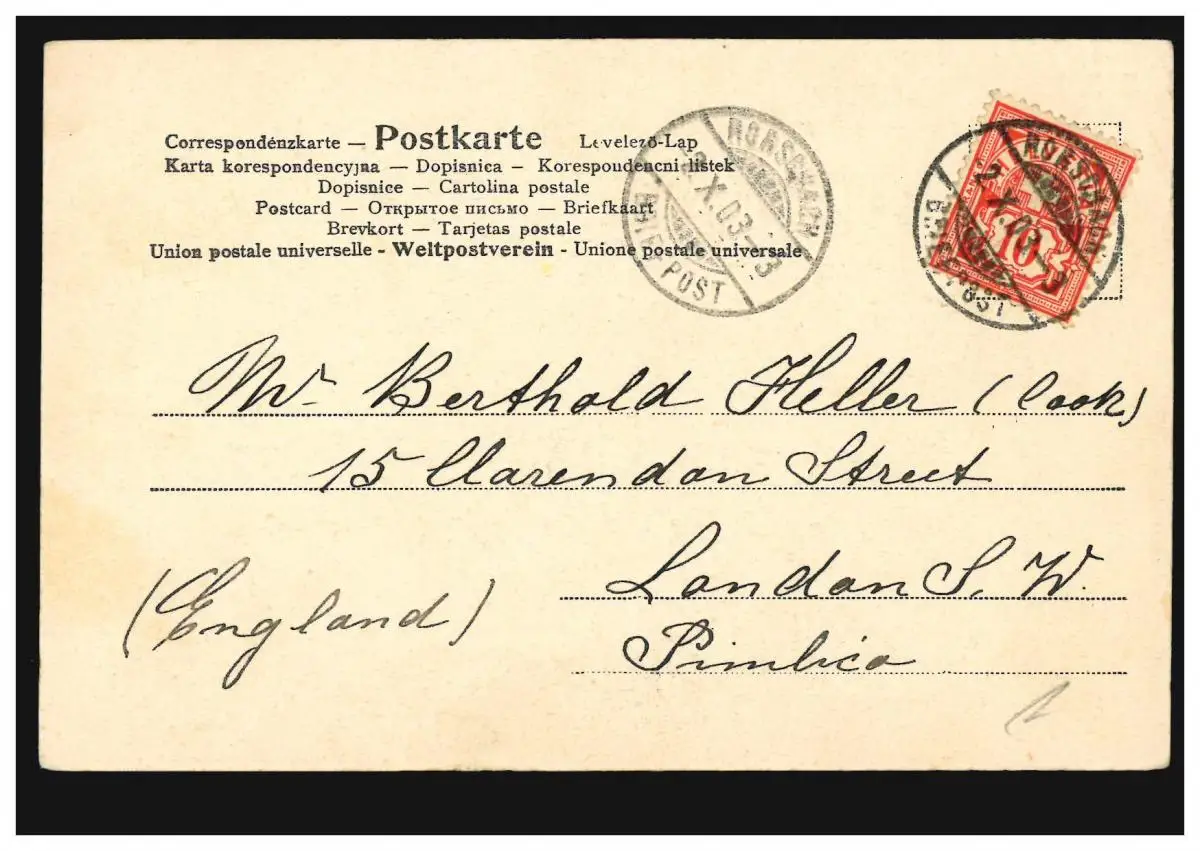 Correspondénzkarte — Postkarte Levelező-Lap
Karta korespondencyjna — Dopisnica — Korespoudencni listek
Dopisnice — Cartolina postale
Postcard — Открытое письмо — Briefkaart
Brevkort — Tarjetas postale
Union postale universelle - Weltpostverein - Unione postale universale
RORSCHACH
2.X.03–3
BRIEFPOST
RORSCHACH
2.X.03–3
BRIEFPOST
10
Mr Berthold Heller (Cook)
15 Clarendon Street
London S. W.
(England)
Pimlico